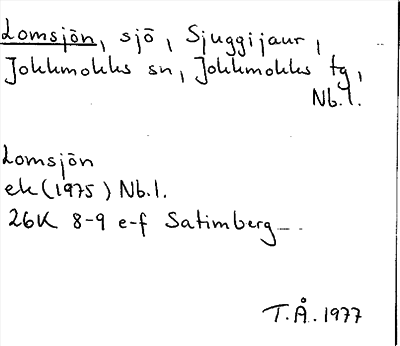 Lomsjön, sjö, Sjuggijaur,
Jokkmokks sn, Jokkmokks tg,
Nb.l.
Lomsjön
ek (1975) Nb.l.
26K 8-9 e-f Satimberg
T.Å. 1977